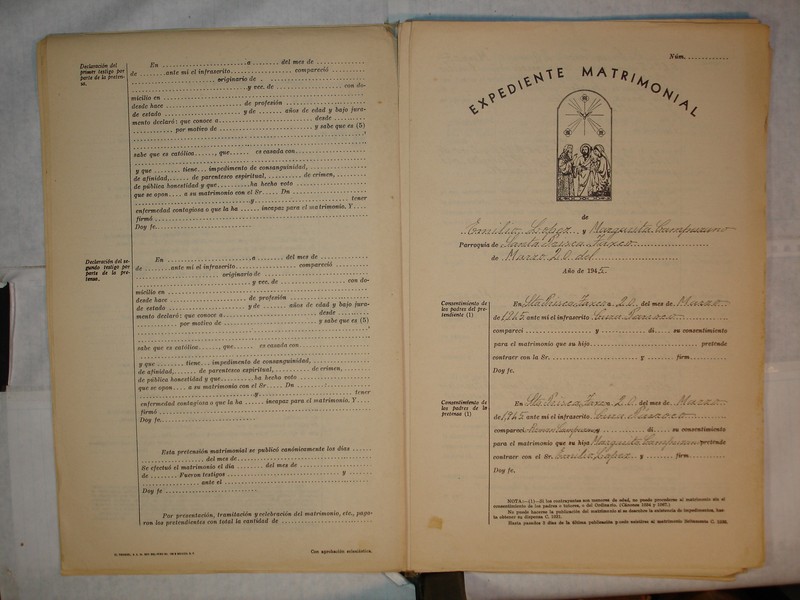 Declaración del
primer testigo por
parte de la preten-
sa.
En .................. a ........ del mes de ..............
de ....... ante mi el infrascrito .................. compareció ..........
.................. originario de ..................
.................. y vec. de .................. con do-
micilio en ..................
desde hace .................. de profesión ..................
de estado .................. y de ....... años de edad y bajo jura-
mento declaró: que conoce a .................. desde ..........
.................. por motivo de .................. y sabe que es (5)
sabe que es católica ......, que ...... es casada con ..................
y que ........ tiene... impedimento de consanguinidad, ..........
de afinidad, ...... de parentesco espiritual, .......... de crimen, ..........
de pública honestidad y que ........ ha hecho voto ..................
que se opon .... a su matrimonio con el Sr. .... Dn ..................
.................. y .................. tener
enfermedad contagiosa o que la ha ...... incapaz para el matrimonio. Y ....
firmó ..................
Doy fe ..................
Declaración del se-
gundo testigo por
parte de la pre-
tensa.
En .................. a ........ del mes de ..............
de ....... ante mi el infrascrito .................. compareció ..........
.................. originario de ..................
.................. y vec. de .................. con do-
micilio en ..................
desde hace .................. de profesión ..................
de estado .................. y de ....... años de edad y bajo jura-
mento declaró: que conoce a .................. desde ..........
.................. por motivo de .................. y sabe que es (5)
sabe que es católica ......, que ...... es casada con ..................
y que ........ tiene... impedimento de consanguinidad, ..........
de afinidad, ...... de parentesco espiritual, .......... de crimen, ..........
de pública honestidad y que ........ ha hecho voto ..................
que se opon .... a su matrimonio con el Sr. .... Dn ..................
.................. y .................. tener
enfermedad contagiosa o que la ha ...... incapaz para el matrimonio. Y ....
firmó ..................
Doy fe ..................
Esta pretensión matrimonial se publicó canónicamente los días ......
.................. del mes de ..................
Se efectuó el matrimonio el día ........ del mes de ..................
de ........ Fueron testigos .................. y
.................. ante el ..................
Doy fe ..................
Por presentación, tramitación y celebración del matrimonio, etc., paga-
ron los pretendientes con total la cantidad de ..................
Con aprobación eclesiástica.
Núm. ............
EXPEDIENTE MATRIMONIAL
de
Emilio Lopez y Margarita Campuzano
Parroquia de Santa Prisca Taxco
de Marzo 20 del
Año de 1945
Consentimiento de
los padres del pre-
tendiente (1)
En Sta Prisca Taxco a 20 del mes de Marzo
de 1945 ante mí el infrascrito Cura Parroco
compareci .................. y .................. di .... su consentimiento
para el matrimonio que su hijo .................. pretende
contraer con la Sr. .................. y ........ firm ..........
Doy fe.
Consentimiento de
los padres de la
pretensa (1)
En Sta Prisca Taxco a 20 del mes de Marzo
de 1945 ante mí el infrascrito Cura Parroco
compareci .................. y .................. di su consentimiento
para el matrimonio que su hija Margarita Campuzano pretende
contraer con el Sr. Emilio Lopez y ........ firm ..........
Doy fe.
NOTA:—(1)—Si los contrayentes son menores de edad, no puede procederse al matrimonio sin el
consentimiento de los padres o tutores, o del Ordinario. (Cánones 1034 y 1067.)
No puede hacerse la publicación del matrimonio si se descubre la existencia de impedimentos, has-
ta obtener su dispensa C. 1031.
Hasta pasados 3 días de la última publicación puede asistirse al matrimonio lícitamente C. 1030.